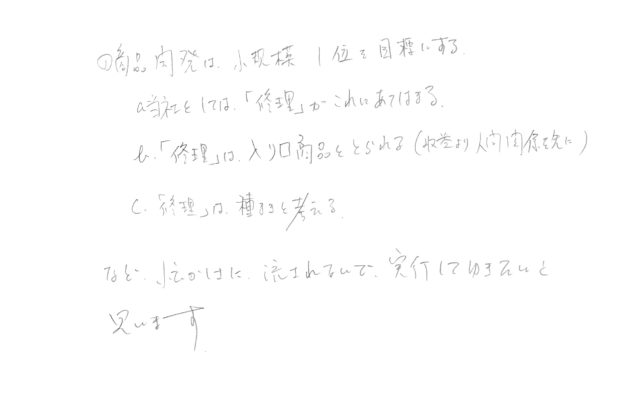 ①商品開発は、小規模 1位を目標にする。
a 当社としては、「修理」がこれにあてはまる。
b.「修理」は、入り口商品ととられる(収益より人間関係を先に)
C.「修理」は、種まきと考える。
など、に、流されないで、実行して行きたいと
思います。